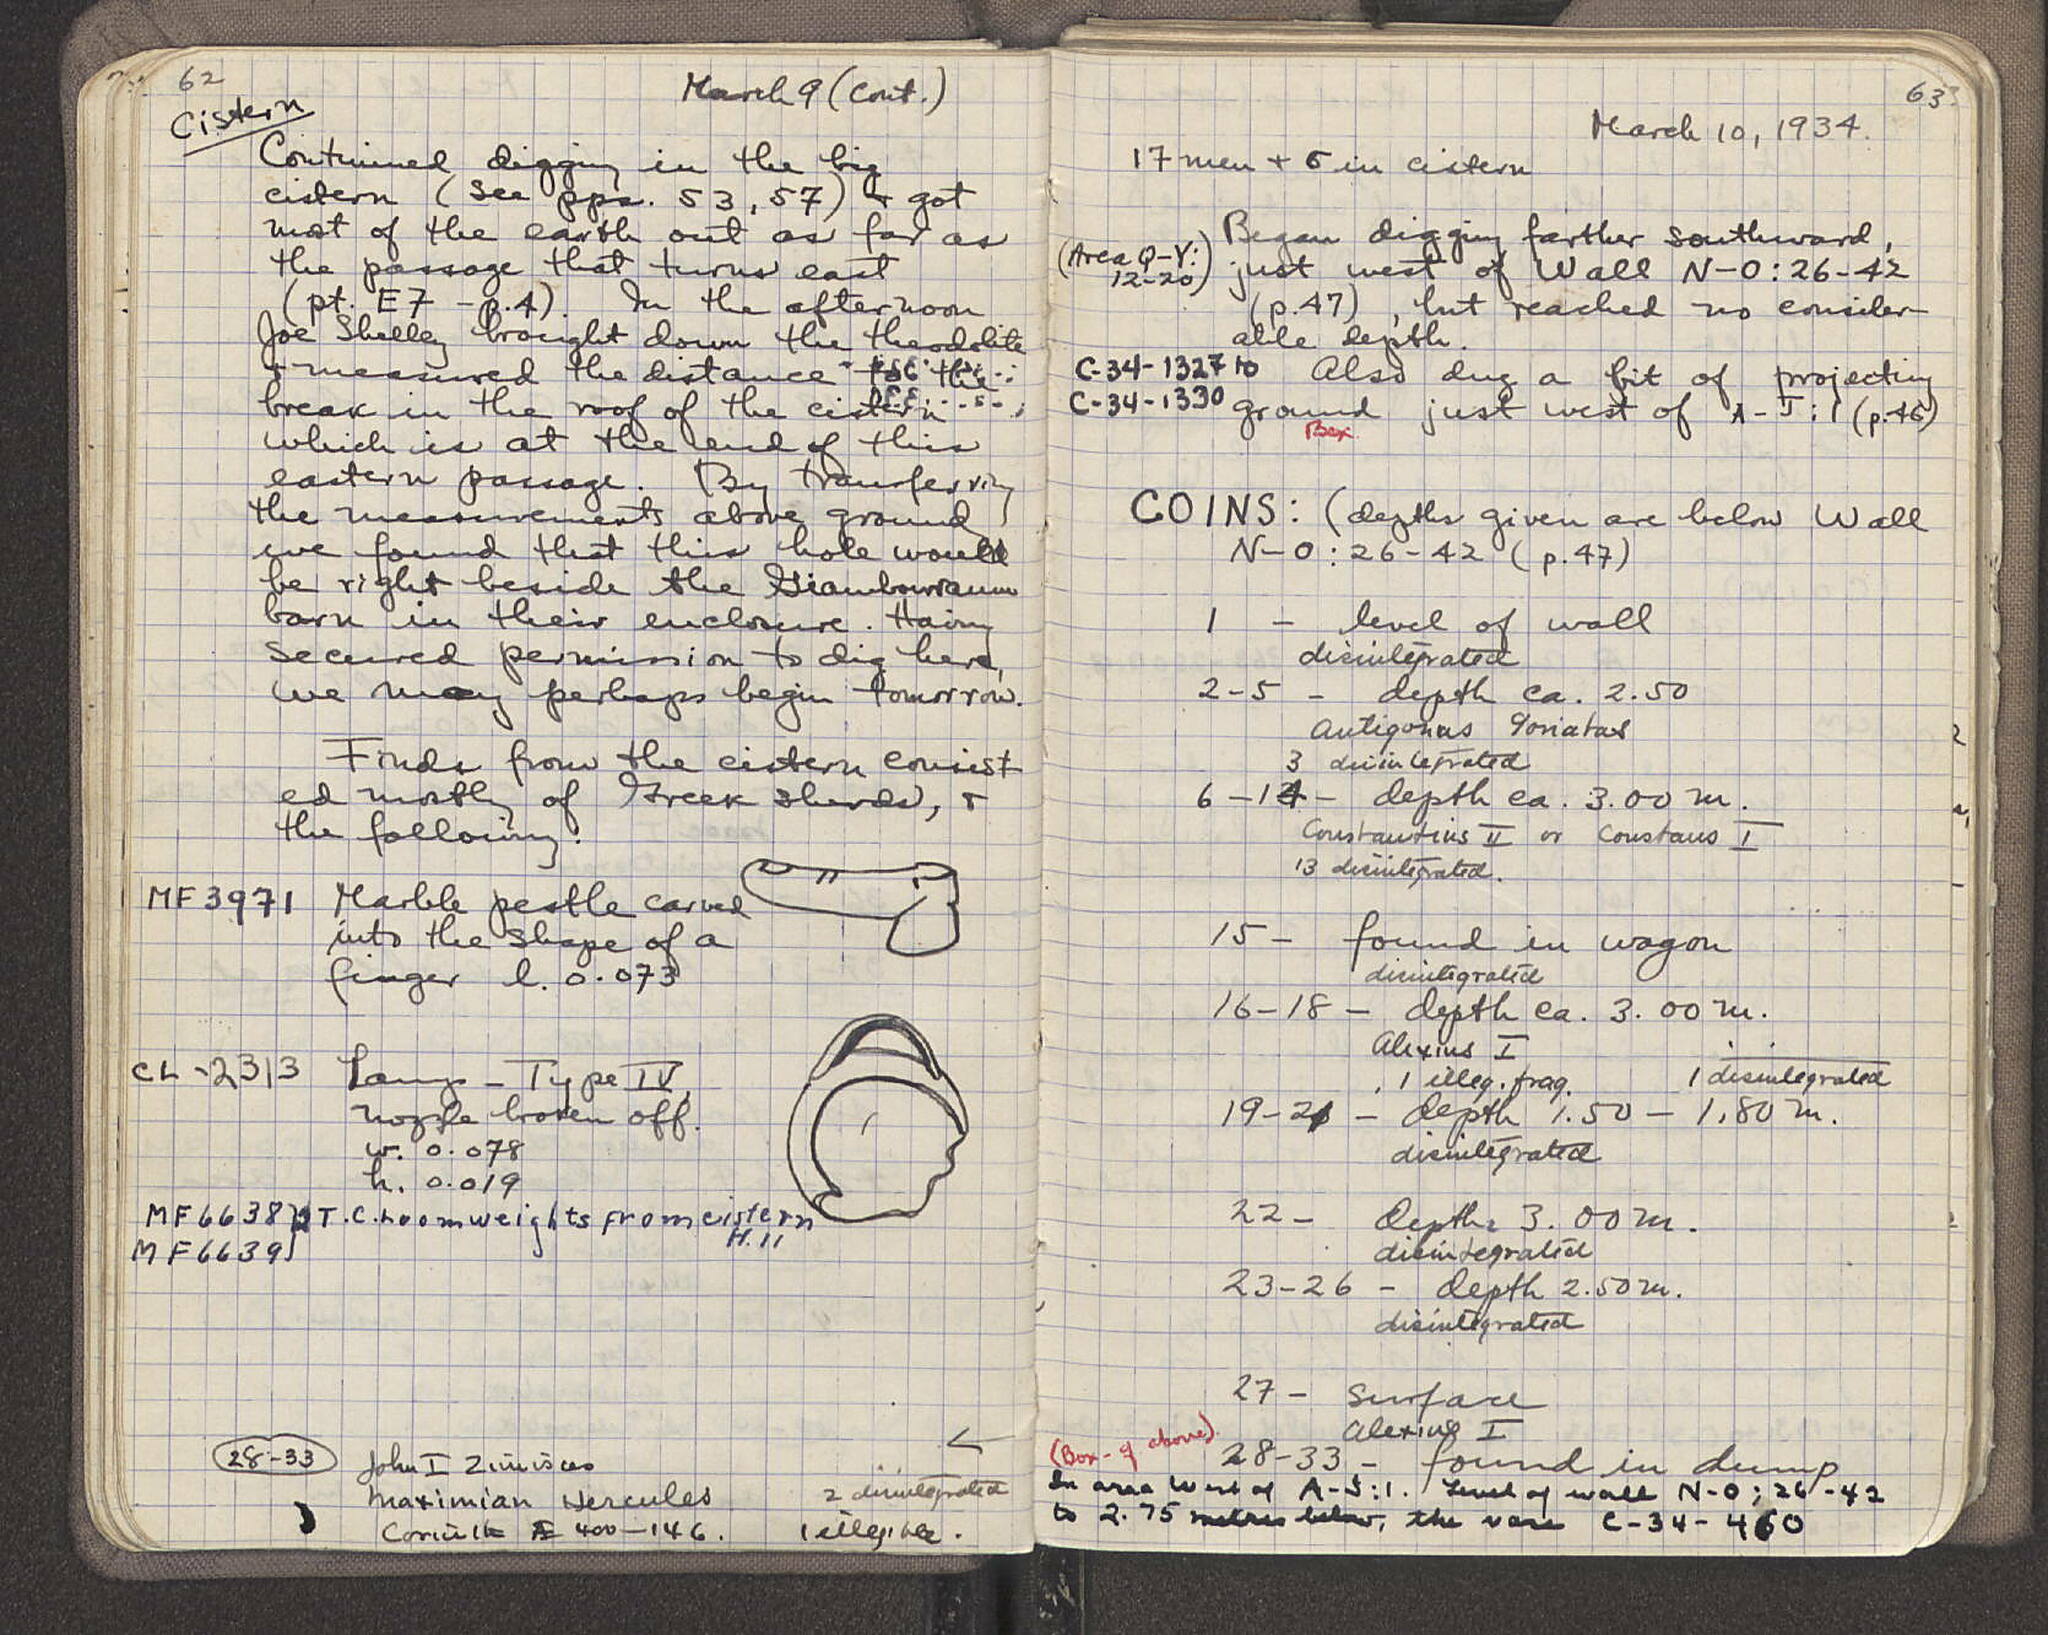 62
March 9 (Cont.)
Cistern
Continued digging in the big
cistern (see pps. 53, 57) + got
most of the earth out as far as
the passage that turns east
(pt. E7 - p.4). In the afternoon
Joe Shelley brought down the theodolite
+ measured the distance to the
break in the roof of the cistern
which is at the end of this
eastern passage. By transferring
the measurements above ground
we found that this hole would
be right beside the
barn in their enclosure. Having
secured permission to dig here,
we may perhaps begin tomorrow.
Finds from the cistern consist
ed mostly of Greek sherds, +
the following:
MF 3971 Marble pestle carved
into the shape of a
finger l. 0.073
CL-2313 Lamp - Type IV,
nozzle broken off.
w. 0.078
h. 0.019
MF 6638 T.C. Loomweights from cistern
H.11
MF 6639
28-33 John I Zimisces
Maximian Hercules 2 disintegrated
Corinth Æ 400-146. 1 illegible.
63
March 10, 1934.
17 men + 5 in cistern
Began digging farther southward,
(Area Q-V: just west of Wall N-O: 26-42
12-20) (p.47), but reached no consider-
able depth.
C-34-1327 to Also dug a bit of projecting
C-34-1330 ground just west of A-J:1 (p.46)
Box
COINS: (depths given are below Wall
N-O: 26-42 (p.47)
1 - level of wall
disintegrated
2-5 - depth ca. 2.50
Antigonus Gonatas
3 disintegrated
6-14 - depth ca. 3.00 m.
Constantius II or Constans I
13 disintegrated.
15 - found in wagon
disintegrated
16-18 - depth ca. 3.00 m.
Alexius I
1 illeg. frag. 1 disintegrated
19-21 - depth 1.50 - 1.80 m.
disintegrated
22 - depth 3.00 m.
disintegrated
23-26 - depth 2.50 m.
disintegrated
27 - Surface
Alexius I
(Box - of above) 28-33 - found in dump
In area West of A-J:1. Level of wall N-O; 26-42
to 2.75 metres below, the vase C-34-460